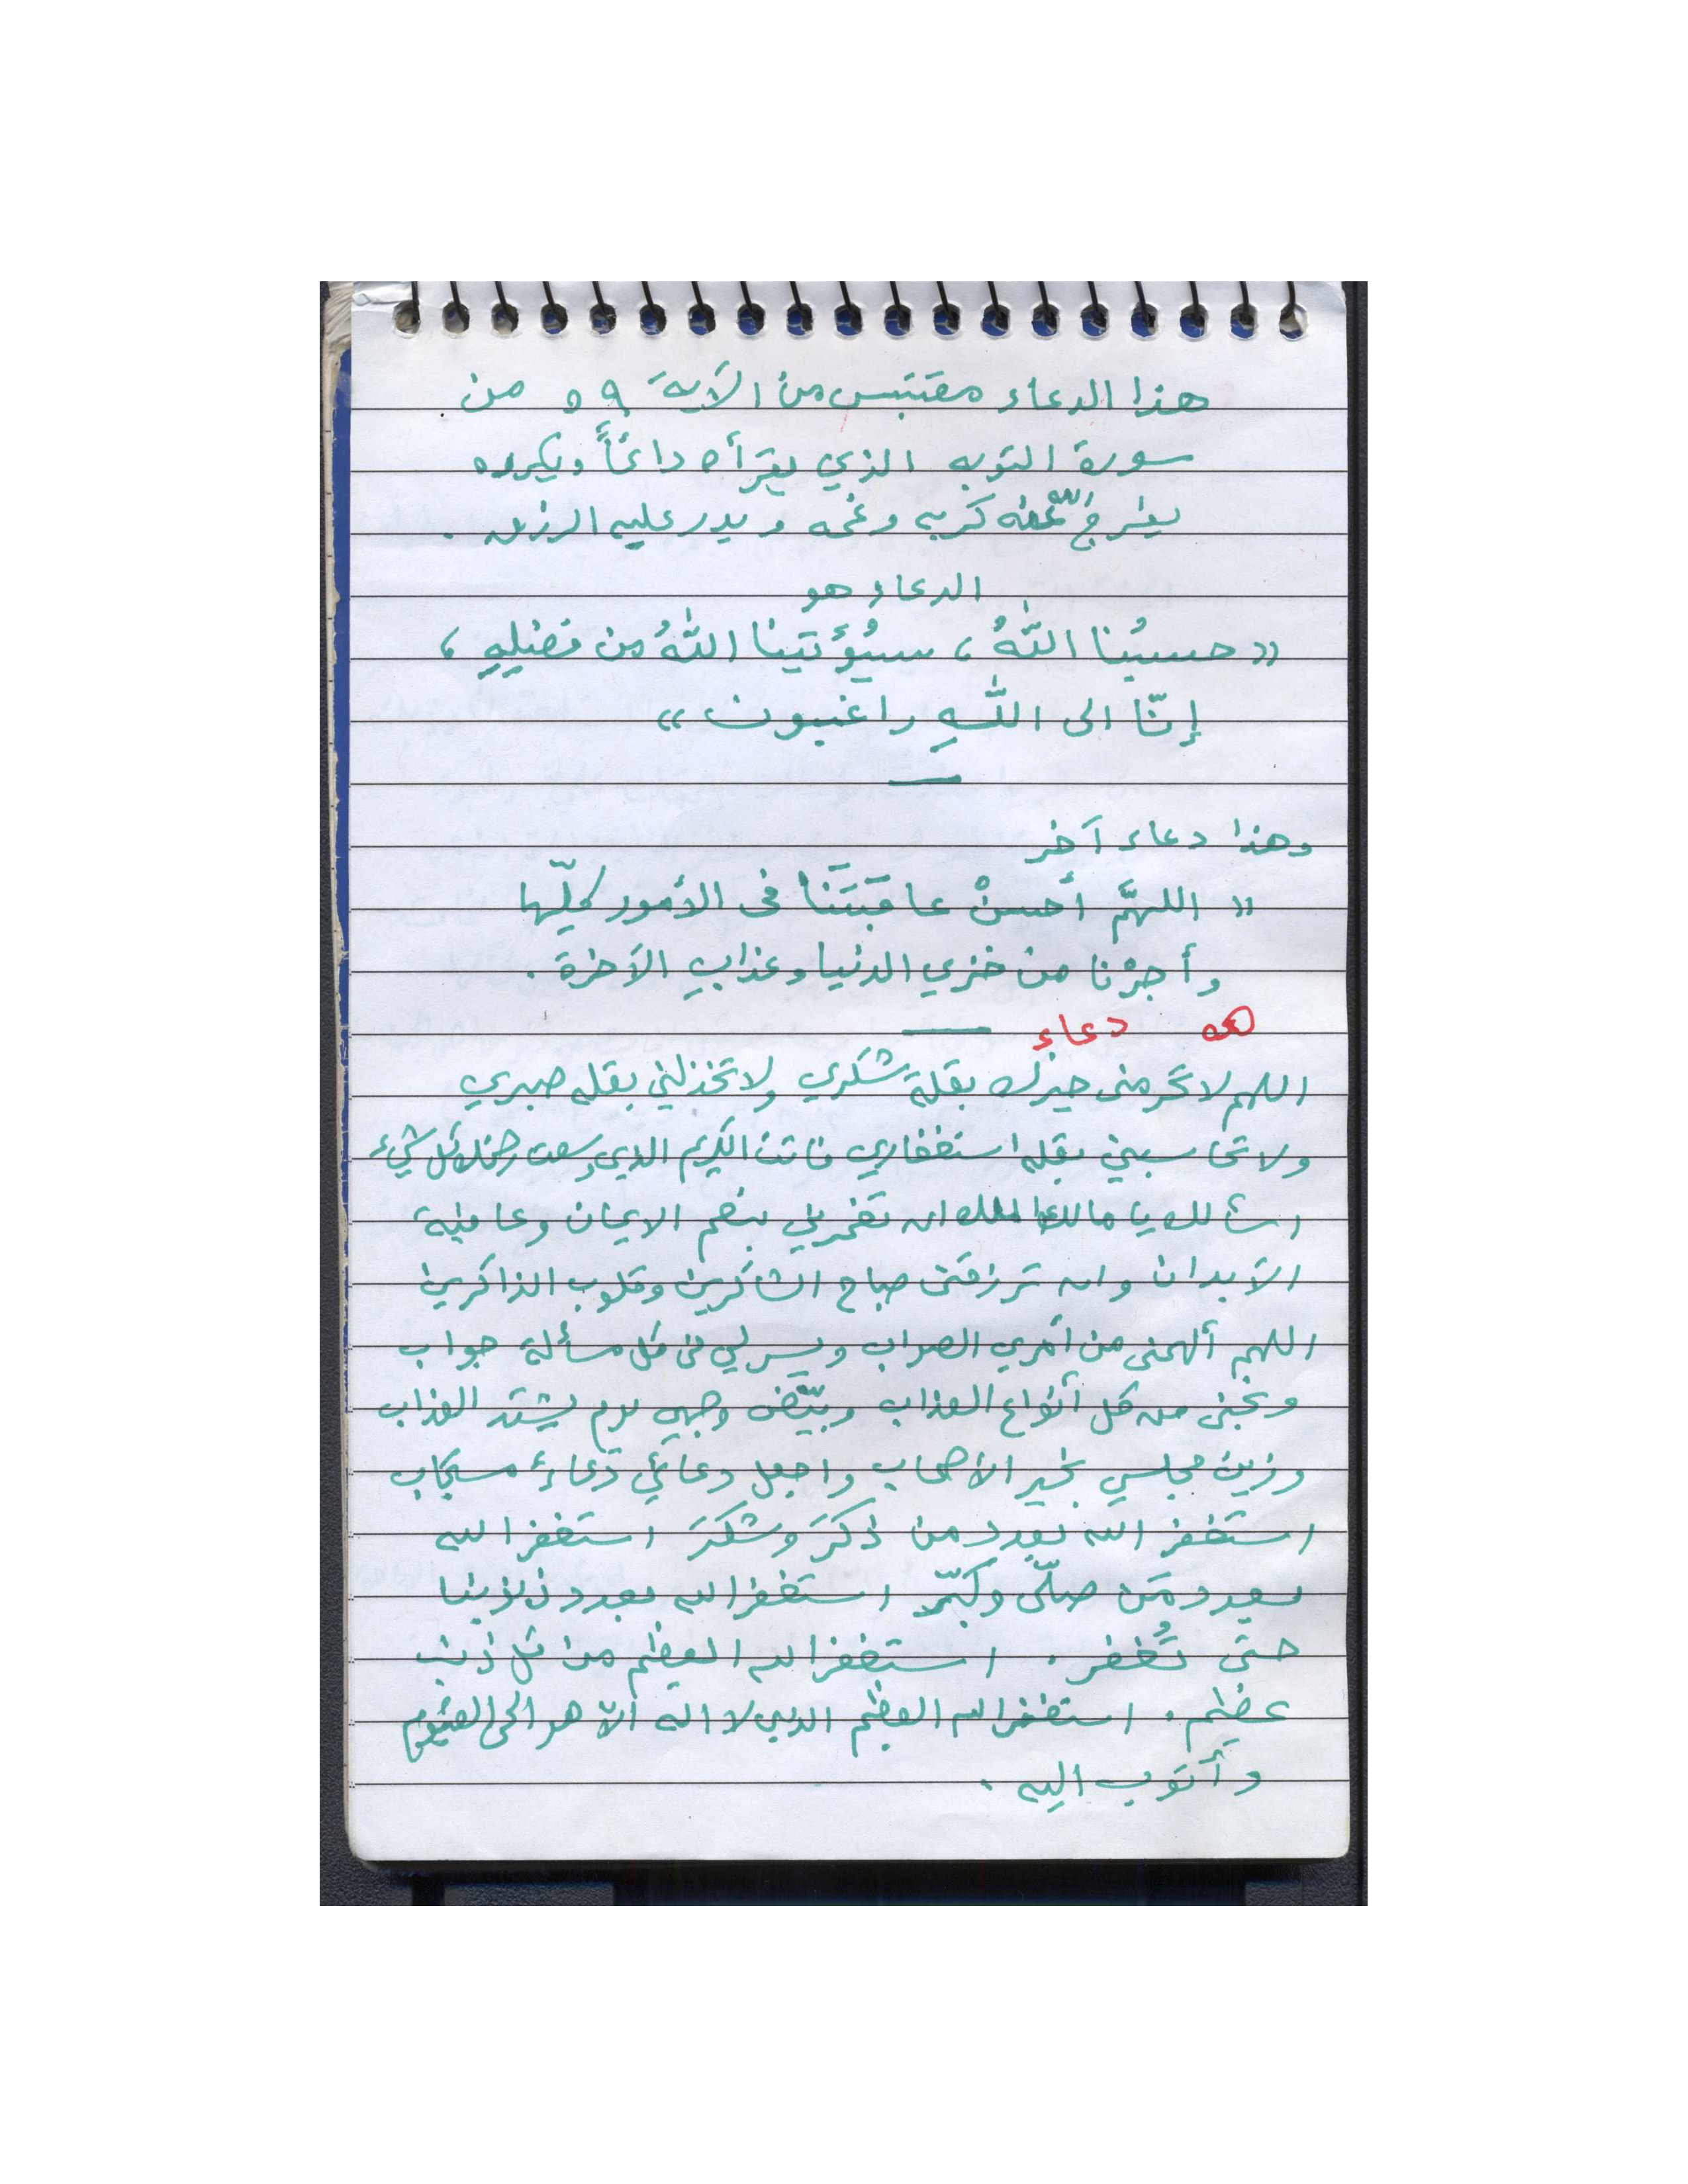 هذا الدعاء مقتبس من الآية ٥٩ من
سورة التوبه الذي يقرأه دائماً ويكرره
يفرج اللّه عنه كربه وغمه ويدر عليه الرزق .
الدعاء هو
«حسبُنا اللّٰهُ ، سيُؤتينا اللّٰهُ من فضلِهِ ،
إنّا الى اللّٰهِ راغبون»
وهذا دعاء آخر
« اللهمَّ أحسنْ عاقبَتَنا فى الأمور كلّها
وأجرْنا من خزي الدنيا وعذابِ الآخرة .
دعاء
اللهم لا تحرمنى خيرك بقلة شكري ولا تخذلني بقله صبري
ولا تحاسبني بقله استغفاري فانت الكريم الذي وسعت رحمتك كل شيء
اسألك يا مالك الملك ان تغمرني بنعم الايمان وعافية
الأبدان وان ترزقنى صباح الشاكرين وقلوب الذاكرين
اللهم ألهمنى من أمري الصواب ويسر لي فى كل مسألة جواب
ونجنى من كل أنواع العذاب وبيّض وجهي يوم يشتد العذاب
وزين مجلسي بخير الأصحاب واجعل دعائي دعاءً مستجاب
استغفر الله بعدد من ذكرَ وشكرَ استغفر الله
بعدد مَن صلّى وكبّر استغفر الله بعدد ذنوبنا
حتى تُغفر . استغفر الله العظيم من كل ذنب
عظيم . استغفر الله العظيم الذي لا اله الّا هو الحى القيوم
وأتوب اليه .